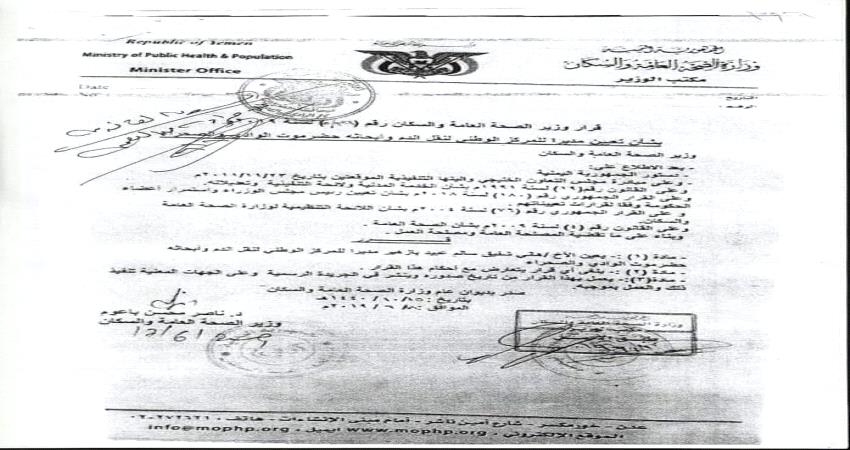 Republic of Yemen
Ministry of Public Health & Population
Minister Office
Date
الجمهورية اليمنية
وزارة الصحة العامة والسكان
مكتب الوزير
التاريخ
الرقم
قرار وزير الصحة العامة والسكان رقم لسنة
بشأن تعيين مديرا للمركز الوطني لنقل الدم وأبحاثه حضرموت الوادي والصحراء
وزير الصحة العامة والسكان
- بعد الاطلاع على:
- دستور الجمهورية اليمنية
- وعلى مبادرة مجلس التعاون الخليجي واليتها التنفيذية الموقعتين بتاريخ ٢٠١١/١١/٢٣م
- وعلى القانون رقم (١٩) لسنة ١٩٩١م بشأن الخدمة المدنية ولائحة التنفيذية وتعديلاته.
- وعلى القرار الجمهوري رقم (١٨٠) لسنة م بشأن تعيين رئيس مجلس الوزراء واستمرار أعضاء
الحكومة وفقا لقرارات تعييناتهم
- وعلى القرار الجمهوري رقم (٧٦) لسنة ٢٠٠٤م بشأن اللائحة التنظيمية لوزارة الصحة العامة
والسكان.
- وعلى القانون رقم (١) لسنة ٢٠٠٩م بشأن الصحة العامة.
- وبناء على ما تقضية المصلحة العامة ومصلحة العمل.
قـــرر
- مادة (١) :- يعين الأخ /هاني سالم عبيد مديرا للمركز الوطني لنقل الدم وأبحاثه
حضرموت الوادي والصحراء.
- مادة (٢) :- يلغى أي قرار يتعارض مع أحكام هذا القرار.
- مادة(٣):- يعمل بهذا القرار من تاريخ صدوره وينشر في الجريدة الرسمية وعلى الجهات المعنية تنفيذ
ذلك والعمل بموجبه.
صدر بديوان عام وزارة الصحة العامة والسكان
بتاريخ : ١٤٤٠/١٠/١٥هـ
الموافق ٢٠١٩/٦/م
د. ناصر محسن باعوم
وزير الصحة العامة والسكان
عدن - خورمكسر - شارع أمين ناشر - أمام مبنى الإنشاءات - هاتف : ٠٢-٢٧٢٦٢١
الموقع الالكتروني : www.mophp.org ايميل : info@mophp.org